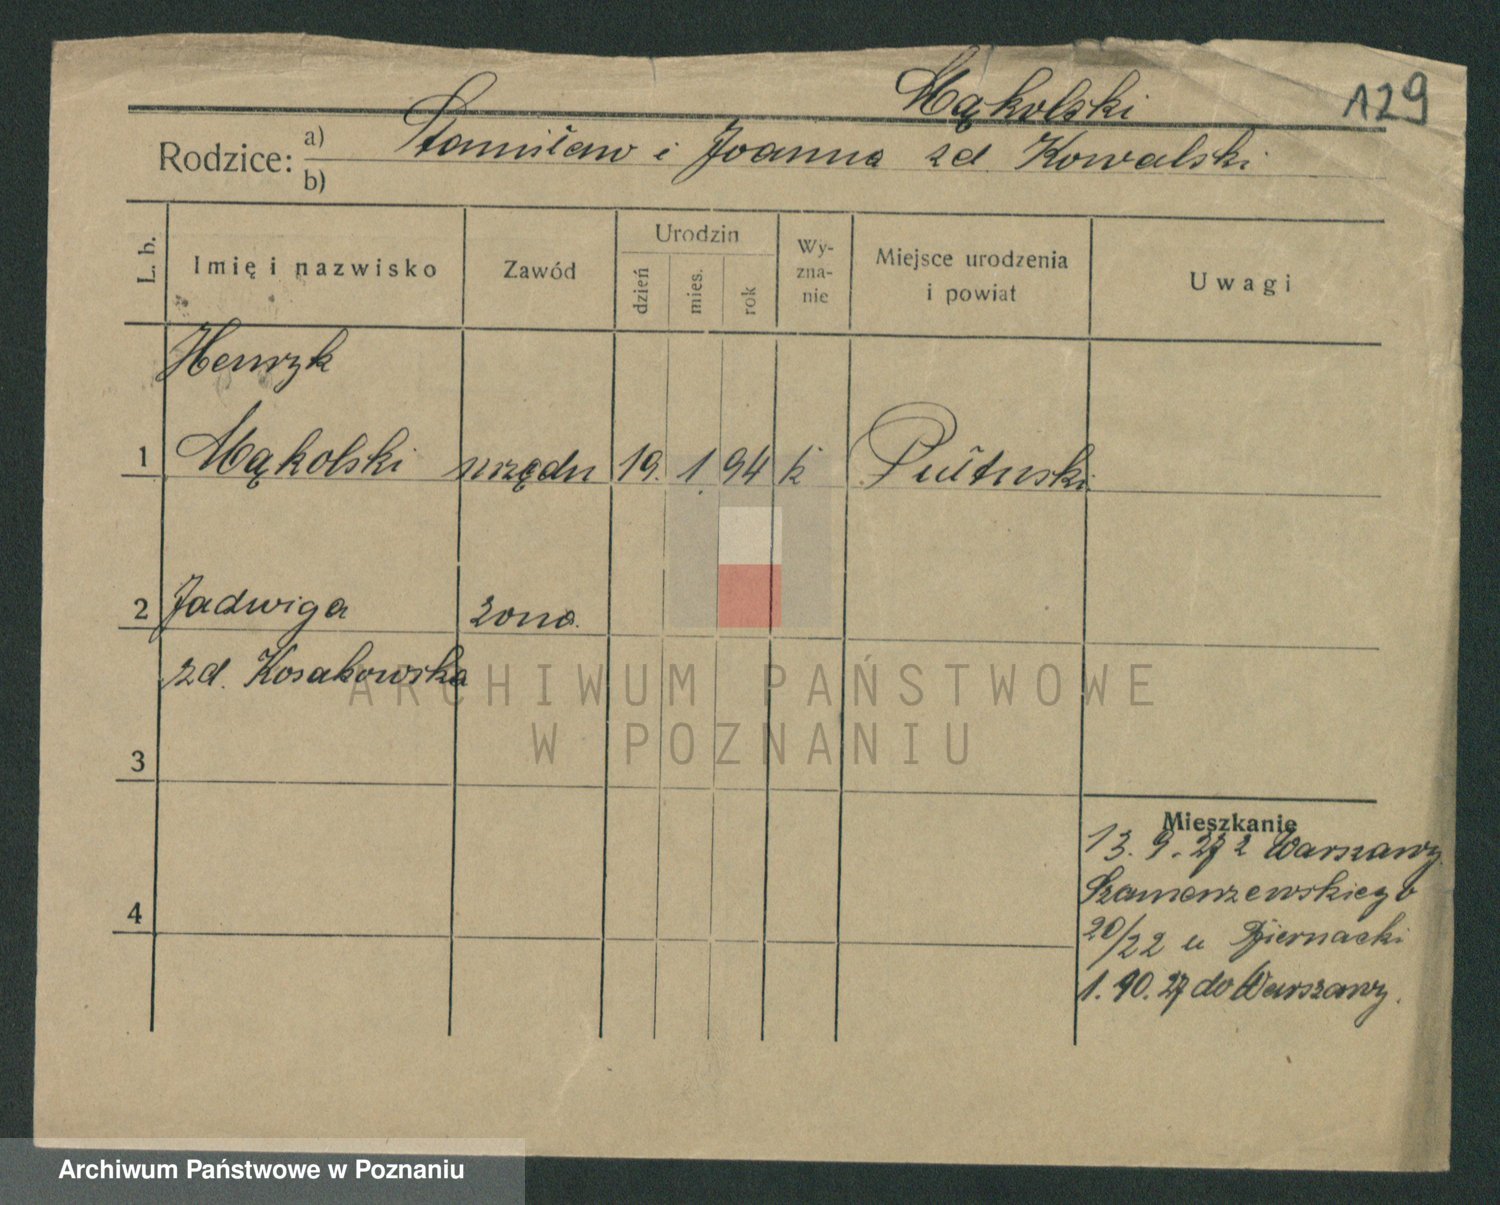 Mąkolski
129
Rodzice: a) b) Stanisław i Joanna zd Kowalski
L. b.
Imię i nazwisko
Zawód
Urodzin
dzień
mies.
rok
Wy-
zna-
nie
Miejsce urodzenia
i powiat
Uwagi
Henryk
1 Mąkolski urzędn 19. 1. 94 k Pułtuski
2 Jadwiga żona
zd. Kosakowska
3
4
Mieszkanie
13. 9. 27 z Warszawy
Szamarzewskiego
20/22 u Biernacki
1. 10. 27 do Warszawy.
ARCHIWUM PAŃSTWOWE
W POZNANIU
Archiwum Państwowe w Poznaniu